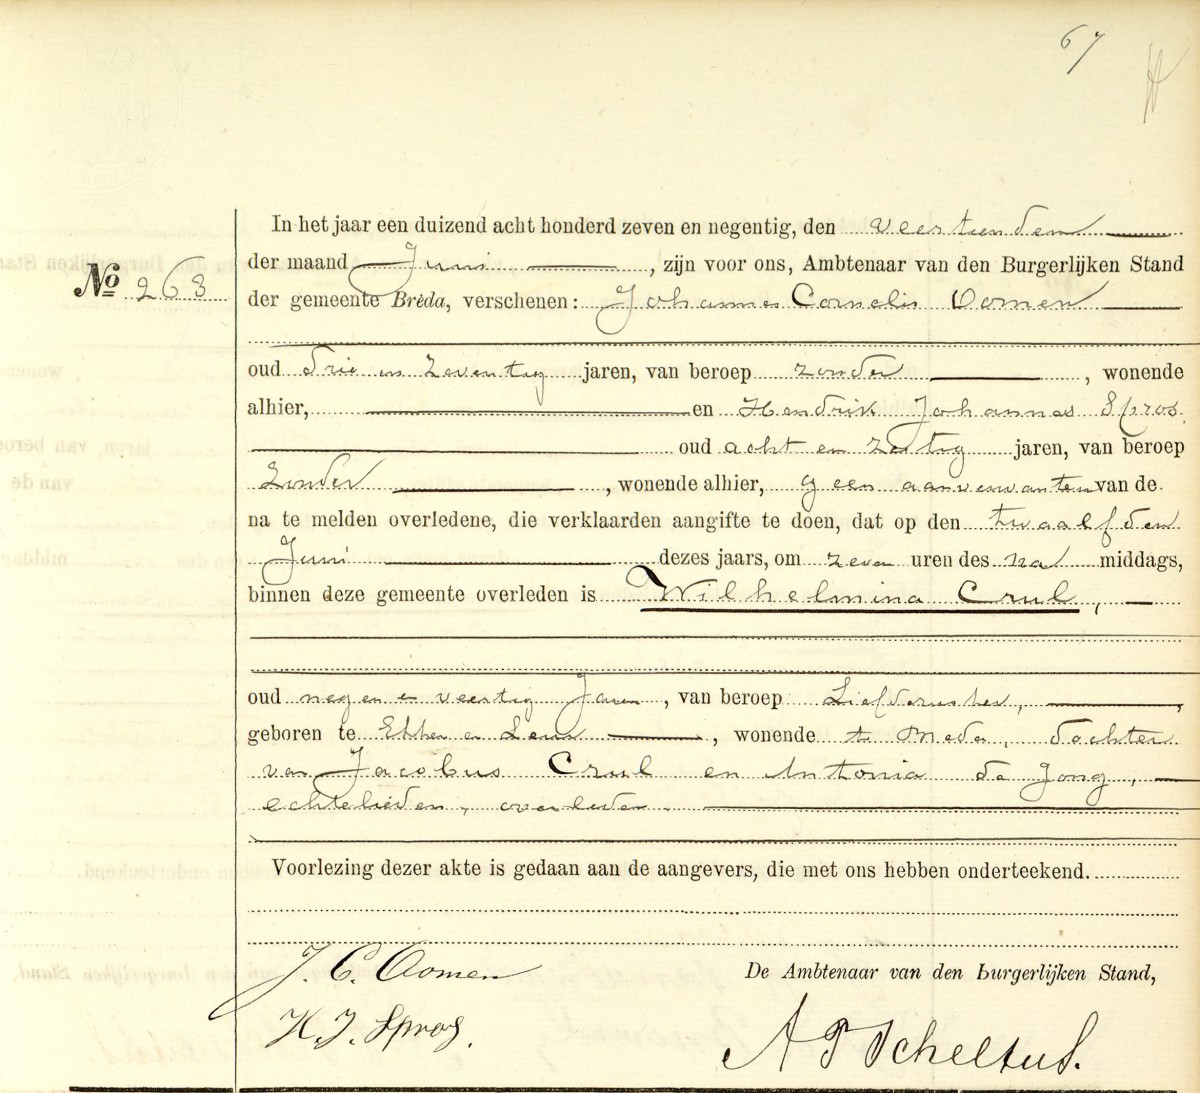 67
In het jaar een duizend acht honderd zeven en negentig, den veertienden
der maand Juni, zijn voor ons, Ambtenaar van den Burgerlijken Stand
No 263
der gemeente Breda, verschenen: Johannes Cornelis Oomen
oud drie en zeventig jaren, van beroep zonder, wonende
alhier, en Hendrik Johannes Spros
oud acht en zestig jaren, van beroep
zonder, wonende alhier, geen aanverwanten van de
na te melden overledene, die verklaarden aangifte te doen, dat op den twaalfden
Juni dezes jaars, om zeven uren des na middags,
binnen deze gemeente overleden is Wilhelmina Crul,
oud negen en veertig Jaren, van beroep Liefdezuster,
geboren te Etten en Leur, wonende te Breda, dochter
van Jacobus Crul en Antonia de Jong,
echtelieden, overleden.
Voorlezing dezer akte is gedaan aan de aangevers, die met ons hebben onderteekend.
J. C. Oomen
De Ambtenaar van den burgerlijken Stand,
H. J. Spros.
A P Scheltus.